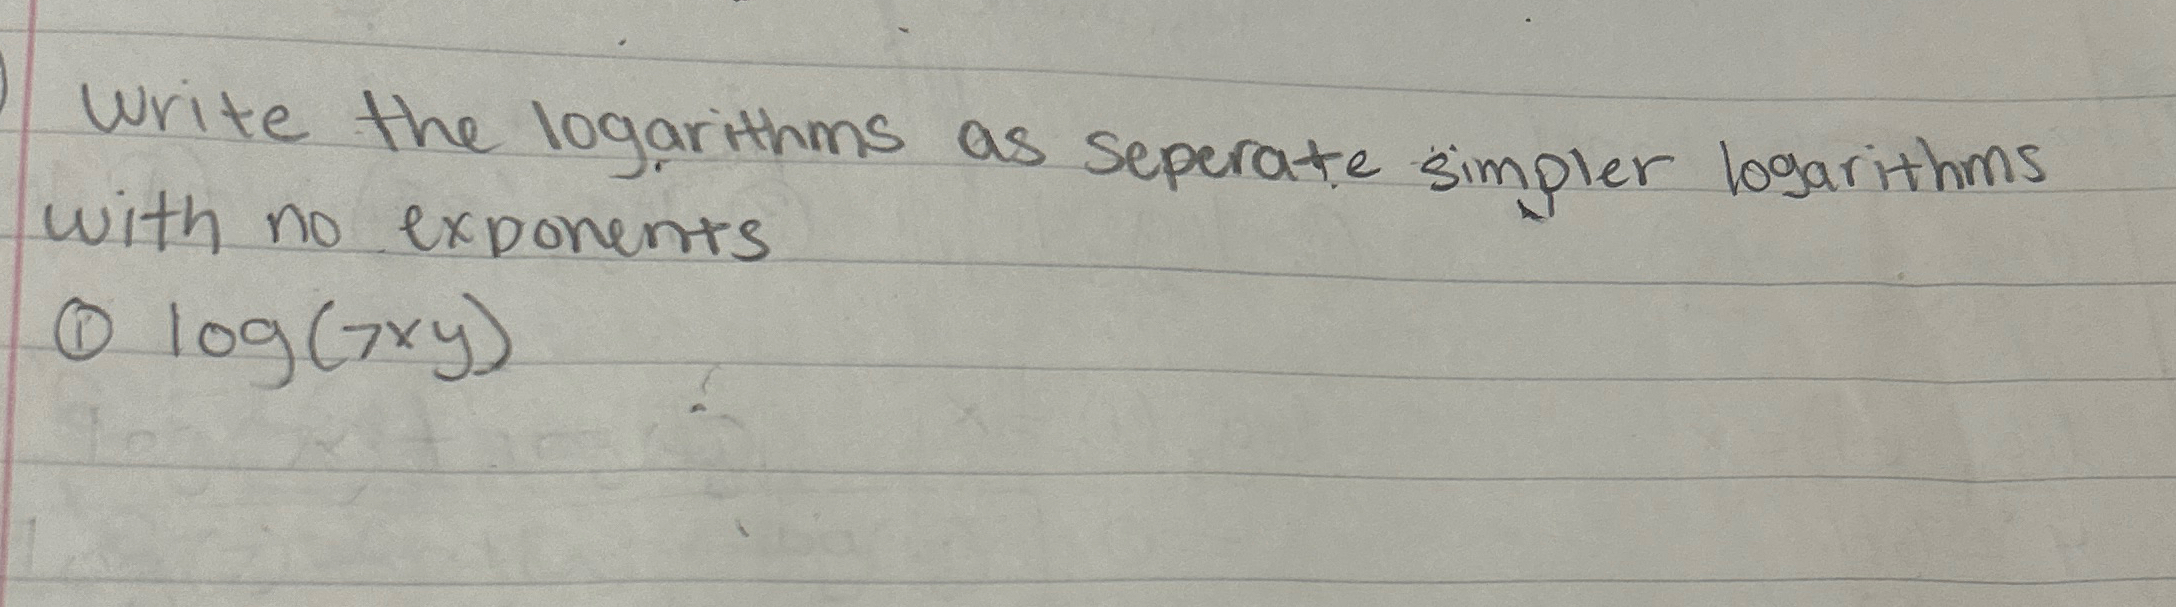 Write the logarithms as seperate simpler logarithms
with no exponents
① log(7xy)